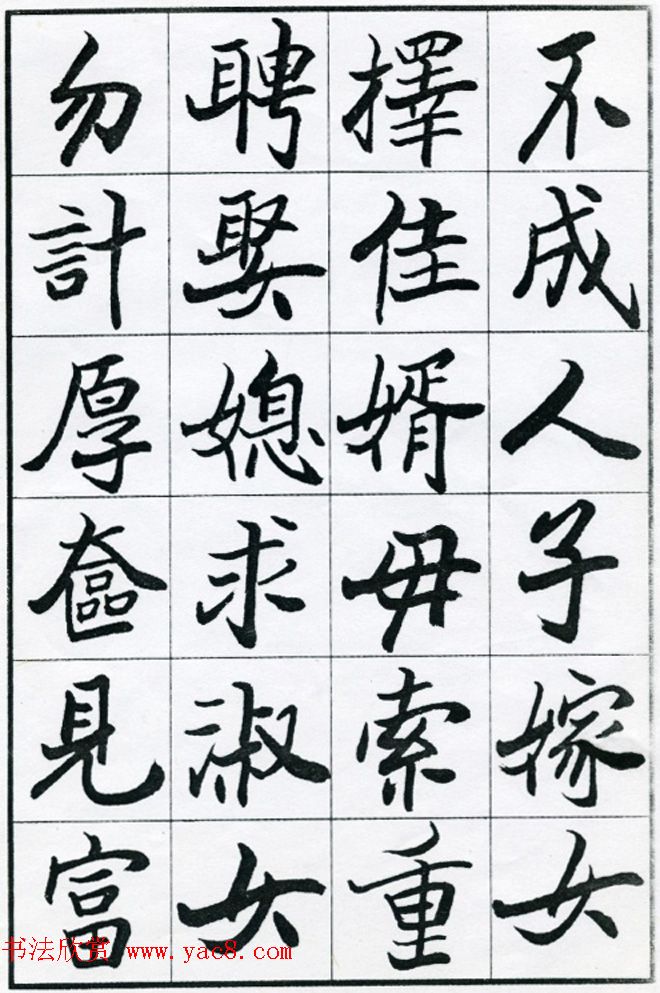 不成人子嫁女
擇佳婿毋索重
聘娶媳求淑女
勿計厚奩見富
书法欣赏 www.yac8.com